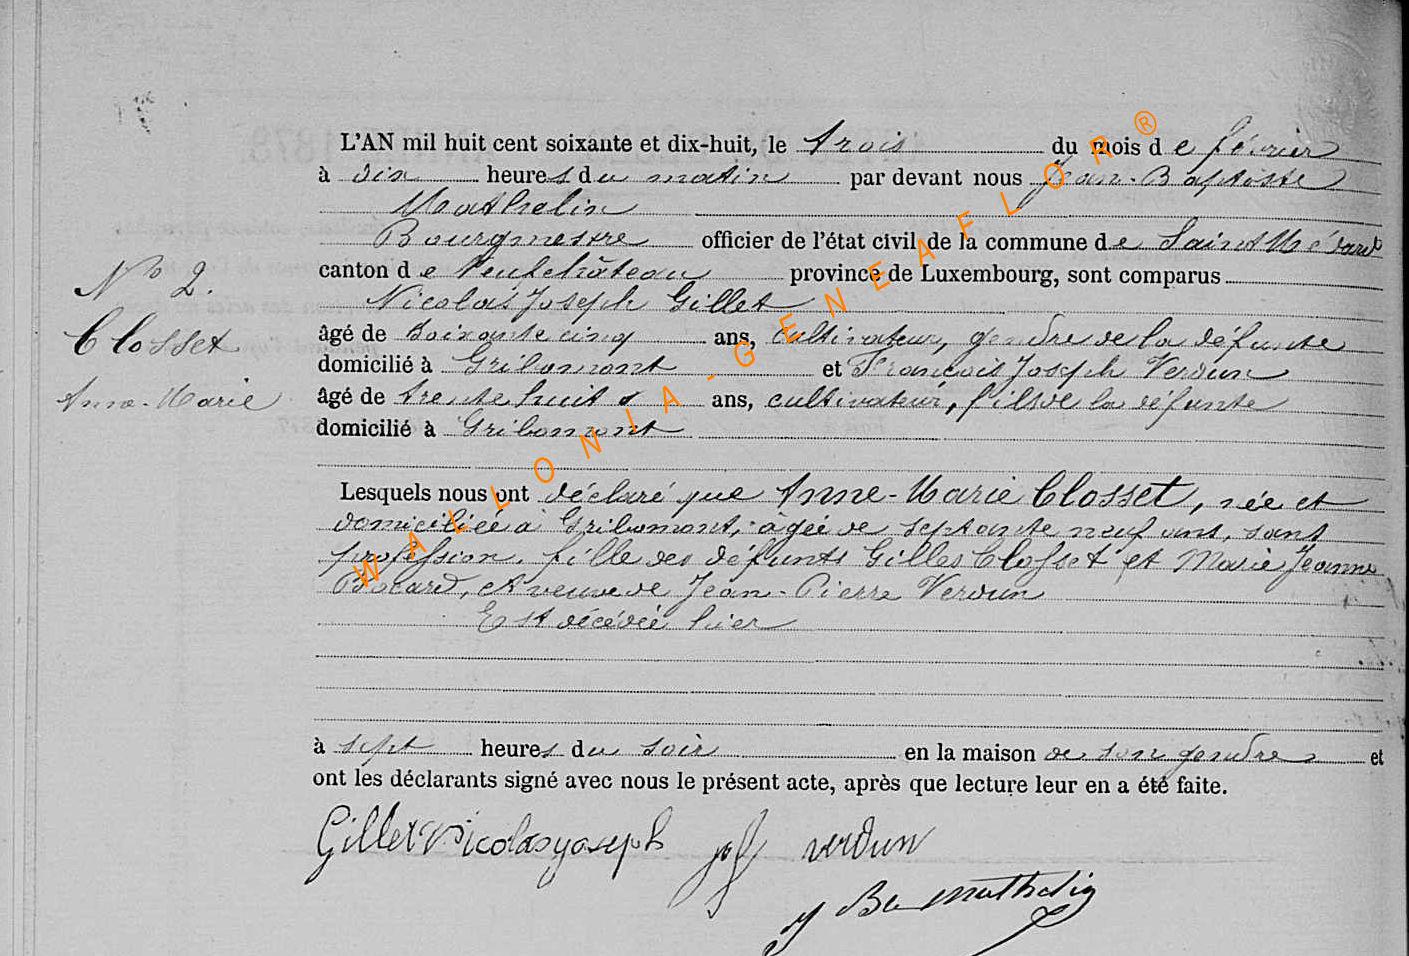 L'AN mil huit cent soixante et dix-huit, le trois du mois de février
à dix heures du matin par devant nous Jean-Baptiste
Mathelin
Bourgmestre officier de l'état civil de la commune de Saint Médard
canton de Neufchâteau province de Luxembourg, sont comparus
Nicolas Joseph Gillet
âgé de soixante cinq ans, cultivateur, gendre de la défunte
domicilié à Gribomont et François Joseph Verdun
âgé de trente huit ans, cultivateur, fils de la défunte
domicilié à Gribomont
N° 2.
Closset
Anne-Marie
Lesquels nous ont déclaré que Anne-Marie Closset, née et
domiciliée à Gribomont, âgée de septante neuf ans, sans
profession, fille des défunts Gilles Closset et Marie Jeanne
et veuve de Jean-Pierre Verdun
Est décédée hier
à sept heures du soir en la maison de son gendre et
ont les déclarants signé avec nous le présent acte, après que lecture leur en a été faite.
Gillet Nicolas joseph jof verdun
J Bte Mathelin
WALLONIA-GENEAFLOR®